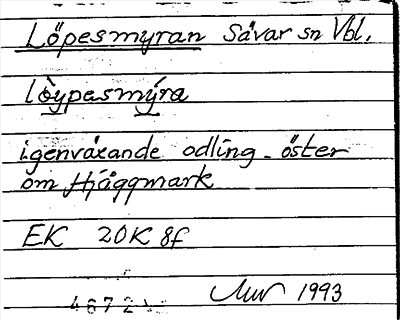 Löpesmyran Sävar sn Vbl.
lòypesmýra
igenväxande odling - öster
om Hjåggmark
EK 20K 8f
1993
4672